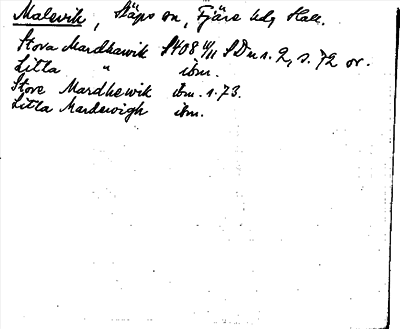 Malevik, Släps sn, Fjäre hd, Hall.
Stora Mardhawik 1408 4/11 SDns. 2, s. 72 or.
Litla " ibm.
Store Mardhewik ibm. s. 73.
Litla Mardewigh ibm.